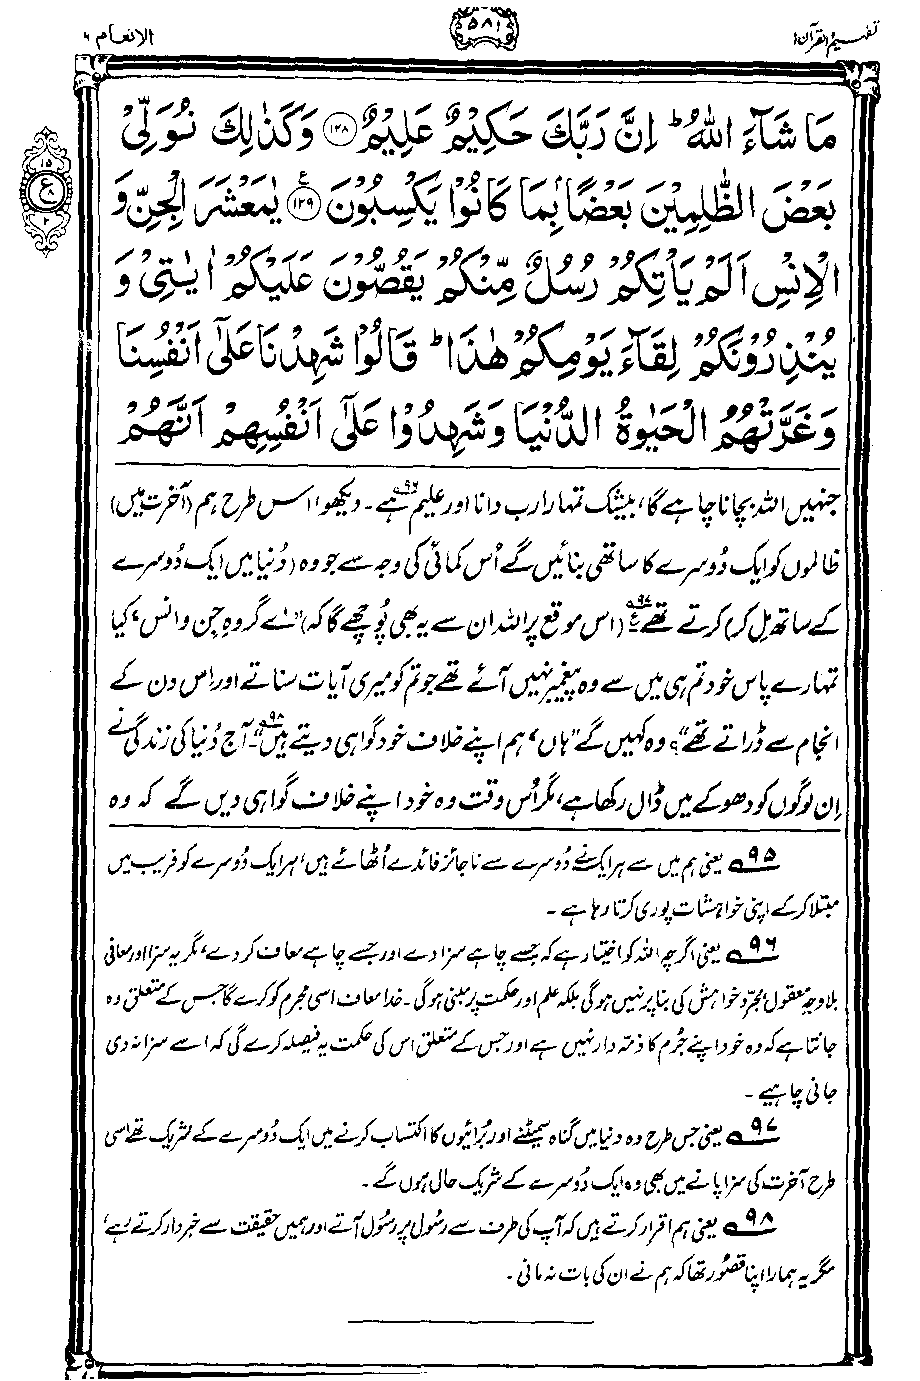 تفہیم القرآن ۱
۵۸۱
الانعام ۶
مَا شَآءَ اللّٰهُ ؕ اِنَّ رَبَّكَ حَكِيْمٌ عَلِيْمٌ ﴿۱۲۸﴾ وَكَذٰلِكَ نُوَلِّىْ
بَعْضَ الظّٰلِمِيْنَ بَعْضًاۢ بِمَا كَانُوْا يَكْسِبُوْنَ ﴿۱۲۹﴾ ع يٰمَعْشَرَ الْجِنِّ وَ
۱۵
ع
۲
الْاِنْسِ اَلَمْ يَاْتِكُمْ رُسُلٌ مِّنْكُمْ يَقُصُّوْنَ عَلَيْكُمْ اٰيٰتِىْ وَ
يُنْذِرُوْنَكُمْ لِقَآءَ يَوْمِكُمْ هٰذَا ؕ قَالُوْا شَهِدْنَا عَلٰٓى اَنْفُسِنَا
وَغَرَّتْهُمُ الْحَيٰوةُ الدُّنْيَا وَشَهِدُوْا عَلٰٓى اَنْفُسِهِمْ اَنَّهُمْ
جنہیں اللہ بچانا چاہے گا، بیشک تمہارا رب دانا اور علیم ہے۹۶۔ دیکھو! اس طرح ہم (آخرت میں)
ظالموں کو ایک دُوسرے کا ساتھی بنائیں گے اُس کمائی کی وجہ سے جو وہ (دُنیا میں ایک دُوسرے
کے ساتھ مِل کر) کرتے تھے۹۷ ع (اس موقع پر اللہ ان سے یہ بھی پُوچھے گا کہ) ”اے گروہِ جِن و انس، کیا
تمہارے پاس خود تم ہی میں سے وہ پیغمبر نہیں آئے تھے جو تم کو میری آیات سناتے اور اس دن کے
انجام سے ڈراتے تھے“؟ وہ کہیں گے ”ہاں، ہم اپنے خلاف خود گواہی دیتے ہیں۹۸“۔ آج دُنیا کی زندگی نے
اِن لوگوں کو دھوکے میں ڈال رکھا ہے، مگر اُس وقت وہ خود اپنے خلاف گواہی دیں گے کہ وہ
۹۵ یعنی ہم میں سے ہر ایک نے دُوسرے سے ناجائز فائدے اُٹھائے ہیں، ہر ایک دُوسرے کو فریب میں
مبتلا کر کے اپنی خواہشات پوری کرتا رہا ہے۔
۹۶ یعنی اگرچہ اللہ کو اختیار ہے کہ جسے چاہے سزا دے اور جسے چاہے معاف کر دے، مگر یہ سزا اور معافی
بلا وجہِ معقول، مجرّد خواہش کی بنا پر نہیں ہوگی بلکہ علم اور حکمت پر مبنی ہوگی۔ خدا معاف اسی مجرم کو کرے گا جس کے متعلق وہ
جانتا ہے کہ وہ خود اپنے جُرم کا ذمہ دار نہیں ہے اور جس کے متعلق اس کی حکمت یہ فیصلہ کرے گی کہ اسے سزا نہ دی
جانی چاہیے۔
۹۷ یعنی جس طرح وہ دنیا میں گناہ سمیٹنے اور بُرائیوں کا اکتساب کرنے میں ایک دُوسرے کے شریک تھے اسی
طرح آخرت کی سزا پانے میں بھی وہ ایک دُوسرے کے شریک حال ہوں گے۔
۹۸ یعنی ہم اقرار کرتے ہیں کہ آپ کی طرف سے رسُول پر رسُول آتے اور ہمیں حقیقت سے خبردار کرتے رہے،
مگر یہ ہمارا اپنا قصُور تھا کہ ہم نے ان کی بات نہ مانی۔